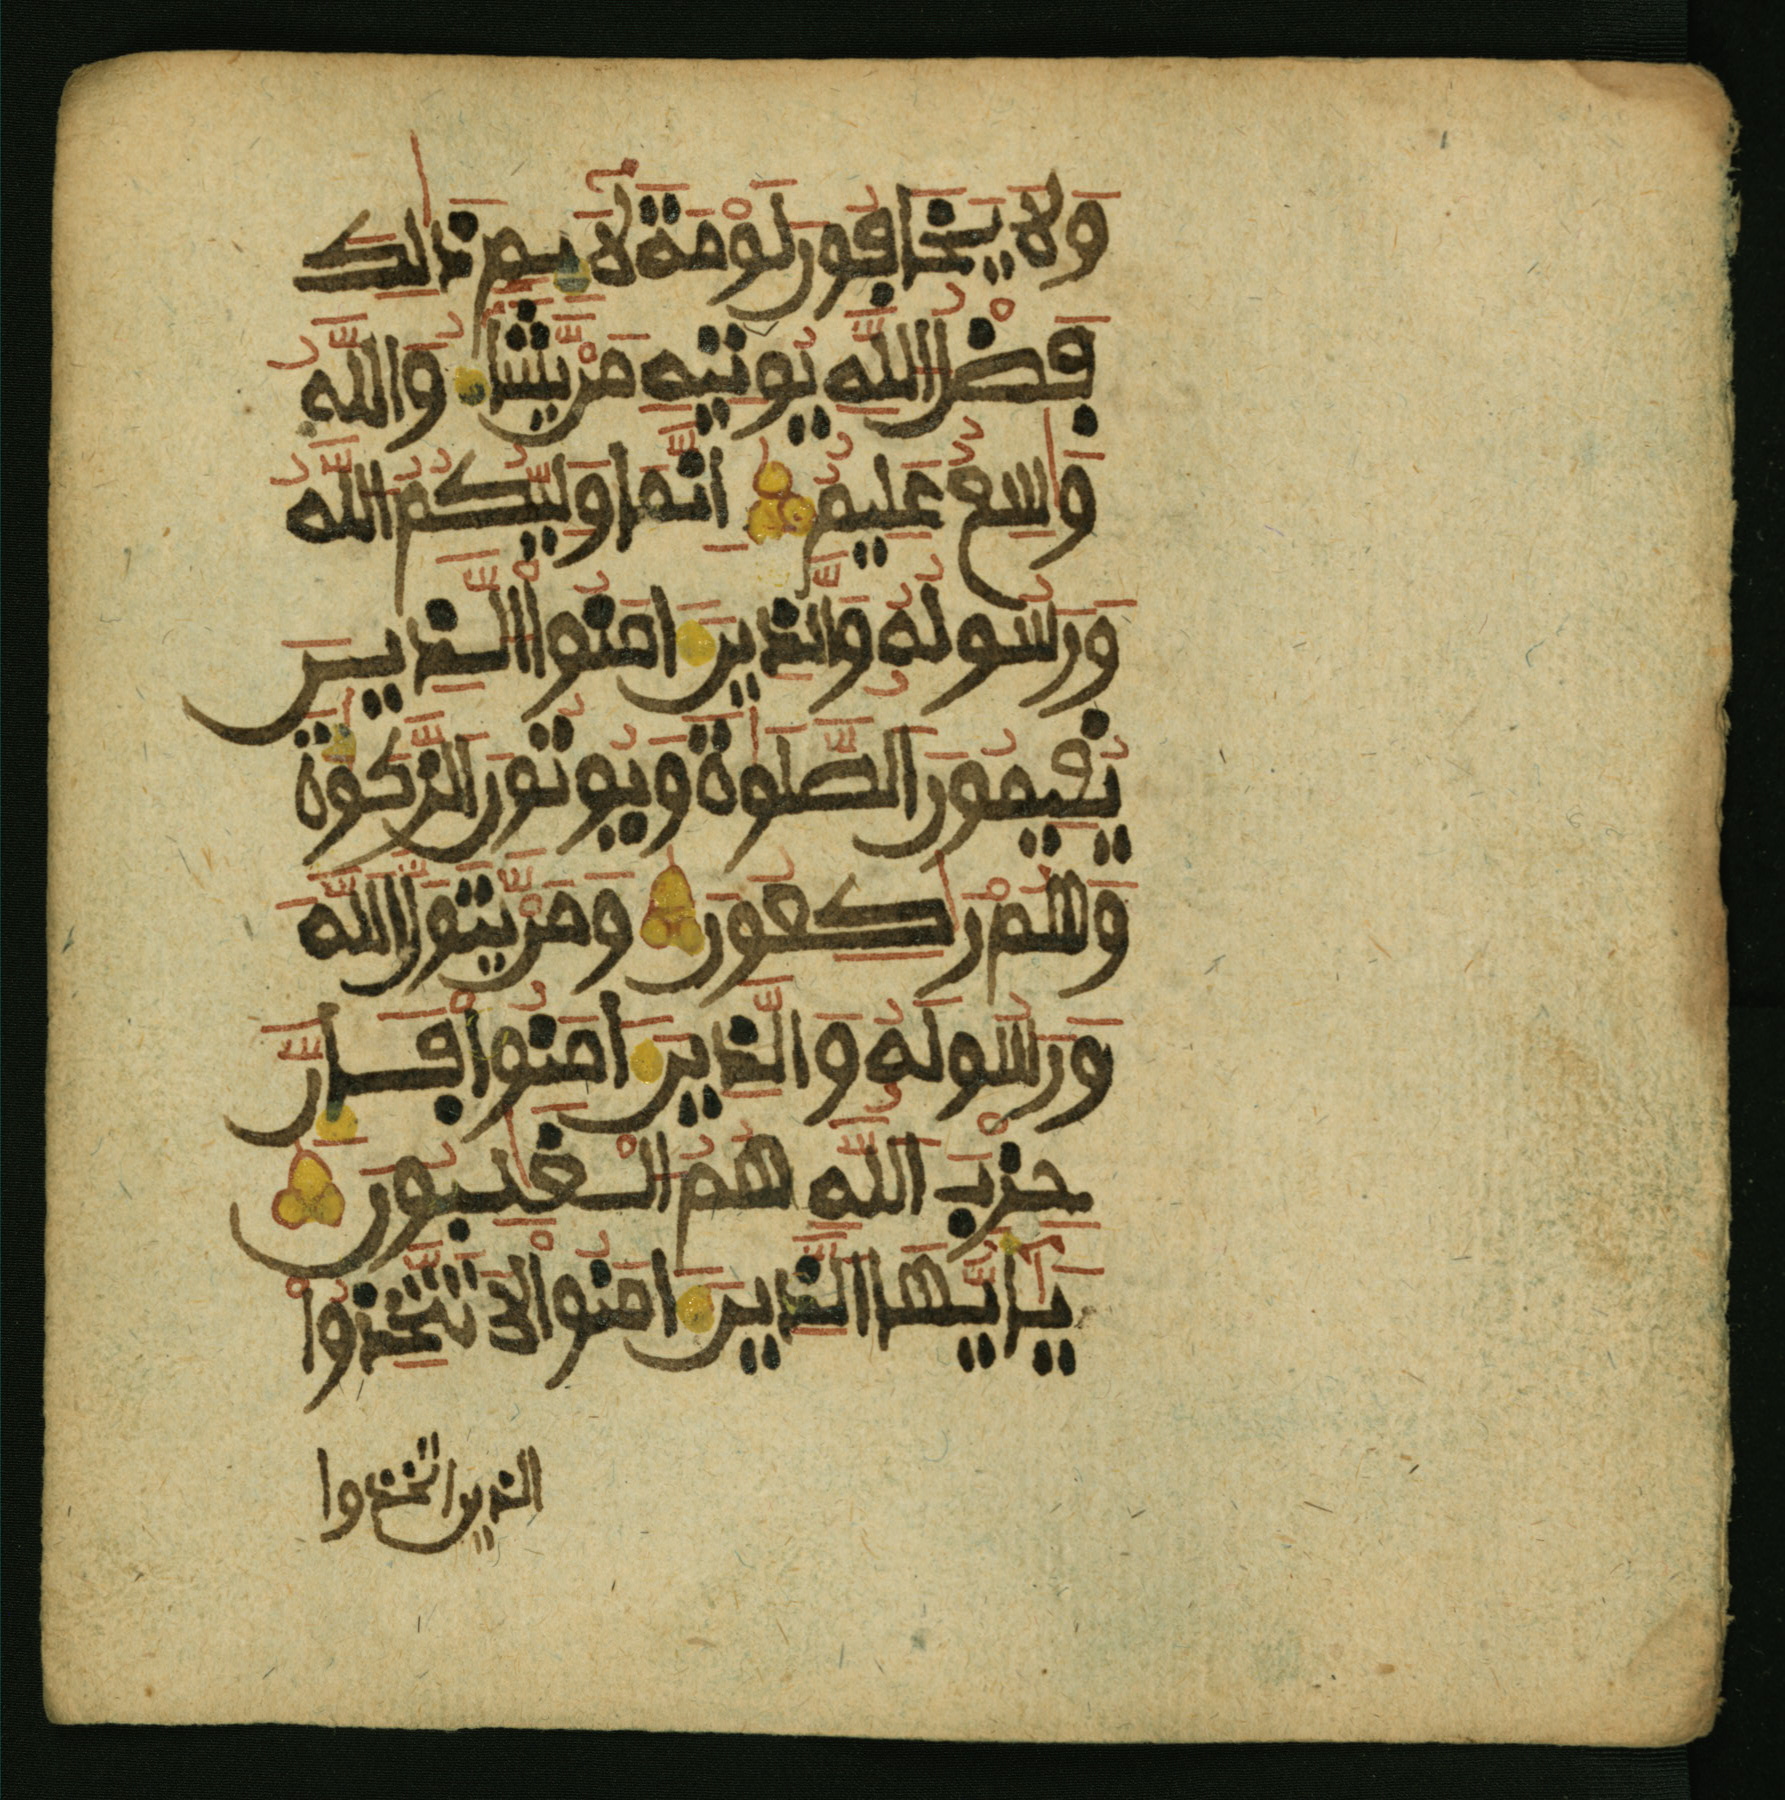 وَلَا يَخَافُونَ لَوْمَةَ لَآئِمٖ ذَٰلِكَ
فَضْلُ اللَّهِ يُوتِيهِ مَنْ يَّشَآءُ وَاللَّهُ
وَٰسِعٌ عَلِيمٌ اِنَّمَا وَلِيُّكُمُ اللَّهُ
وَرَسُولُهُ وَالَّذِينَ ءَامَنُواْ الَّذِينَ
يُقِيمُونَ الصَّلَوٰةَ وَيُوتُونَ الزَّكَوٰةَ
وَهُمْ رَٰكِعُونَ وَمَنْ يَّتَوَلَّ اللَّهَ
وَرَسُولَهُ وَالَّذِينَ ءَامَنُواْ فَإِنَّ
حِزْبَ اللَّهِ هُمُ الْغَٰلِبُونَ
يَٰٓأَيُّهَا الَّذِينَ ءَامَنُواْ لَا تَتَّخِذُواْ
الذين اتخذوا